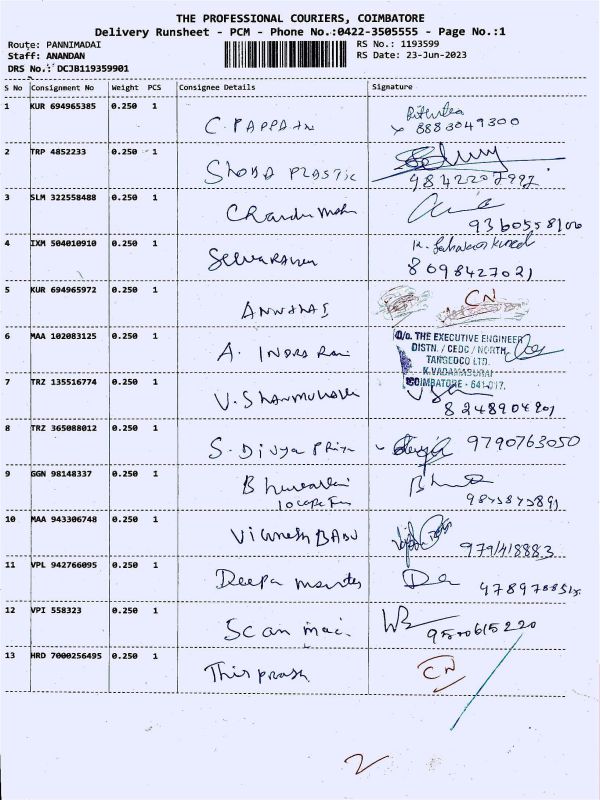 THE PROFESSIONAL COURIERS, COIMBATORE
Delivery Runsheet - PCM - Phone No.:0422-3505555 - Page No.:1
Route: PANNIMADAI
RS No.: 1193599
Staff: ANANDAN
RS Date: 23-Jun-2023
DRS No.: DCJB119359901
S No Consignment No Weight PCS Consignee Details Signature
1 KUR 694965385 0.250 1 C. PAPPA
8883049300
2 TRP 4852233 0.250 1 SHOBA PLASTIC
3 SLM 322558488 0.250 1
9360558106
4 IXM 504010910 0.250 1
8098427021
5 KUR 694965972 0.250 1 CN
6 MAA 102083125 0.250 1 A. INDRA Rani
O/o. THE EXECUTIVE ENGINEER
DISTN. / CEDC / NORTH,
TANGEDCO LTD.
K.VADAMADURAI
COIMBATORE - 641 017.
7 TRZ 135516774 0.250 1 V.
8248904901
8 TRZ 365088012 0.250 1 S. Divya Priya 9790763050
9 GGN 98148337 0.250 1
10 MAA 943306748 0.250 1 VIGNESH BABU
9791418883
11 VPL 942766095 0.250 1 Deepa
12 VPI 558323 0.250 1 Scan
9500615220
13 HRD 7000256495 0.250 1 CN
2